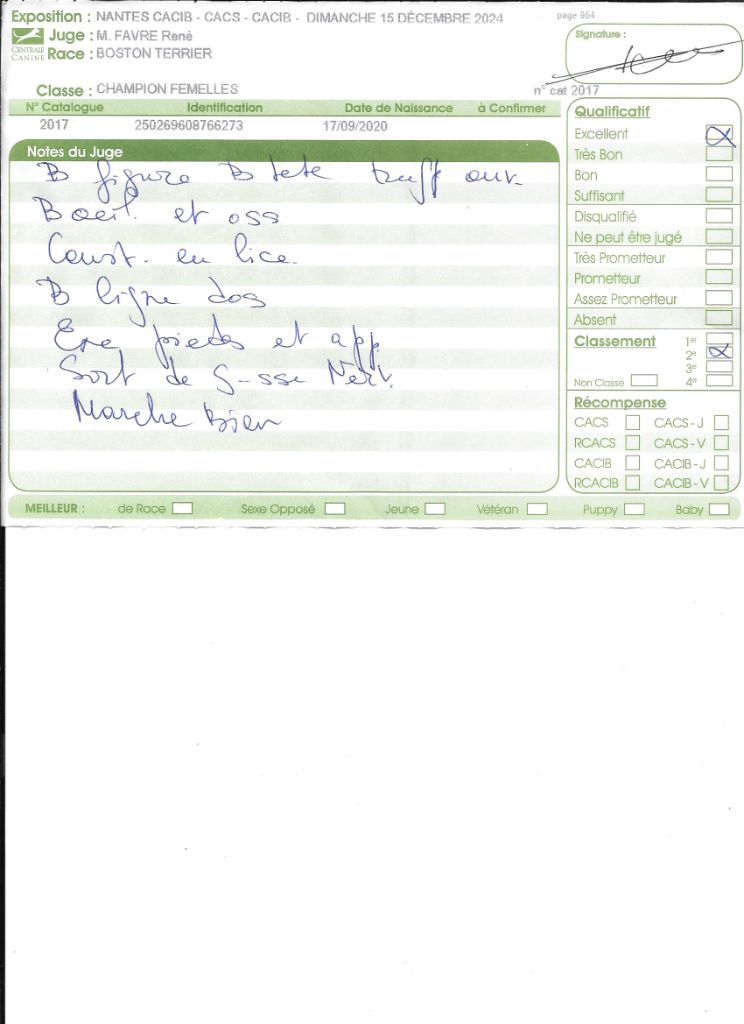 Exposition : NANTES CACIB - CACS - CACIB - DIMANCHE 15 DÉCEMBRE 2024
page 954
CENTRALE CANINE
Juge : M. FAVRE René
Signature :
Race : BOSTON TERRIER
Classe : CHAMPION FEMELLES
n° cat 2017
N° Catalogue Identification Date de Naissance à Confirmer
2017 250269608766273 17/09/2020
Notes du Juge
B figure B tete truff ouv.
B oeil. et oss
Const. en lice.
B ligne dos
Exe pieds et app
Sort de
Marche Bien
Qualificatif
Excellent
Très Bon
Bon
Suffisant
Disqualifié
Ne peut être jugé
Très Prometteur
Prometteur
Assez Prometteur
Absent
Classement 1er
2e
3e
Non Classé 4e
Récompense
CACS CACS - J
RCACS CACS - V
CACIB CACIB - J
RCACIB CACIB - V
MEILLEUR : de Race Sexe Opposé Jeune Vétéran Puppy Baby